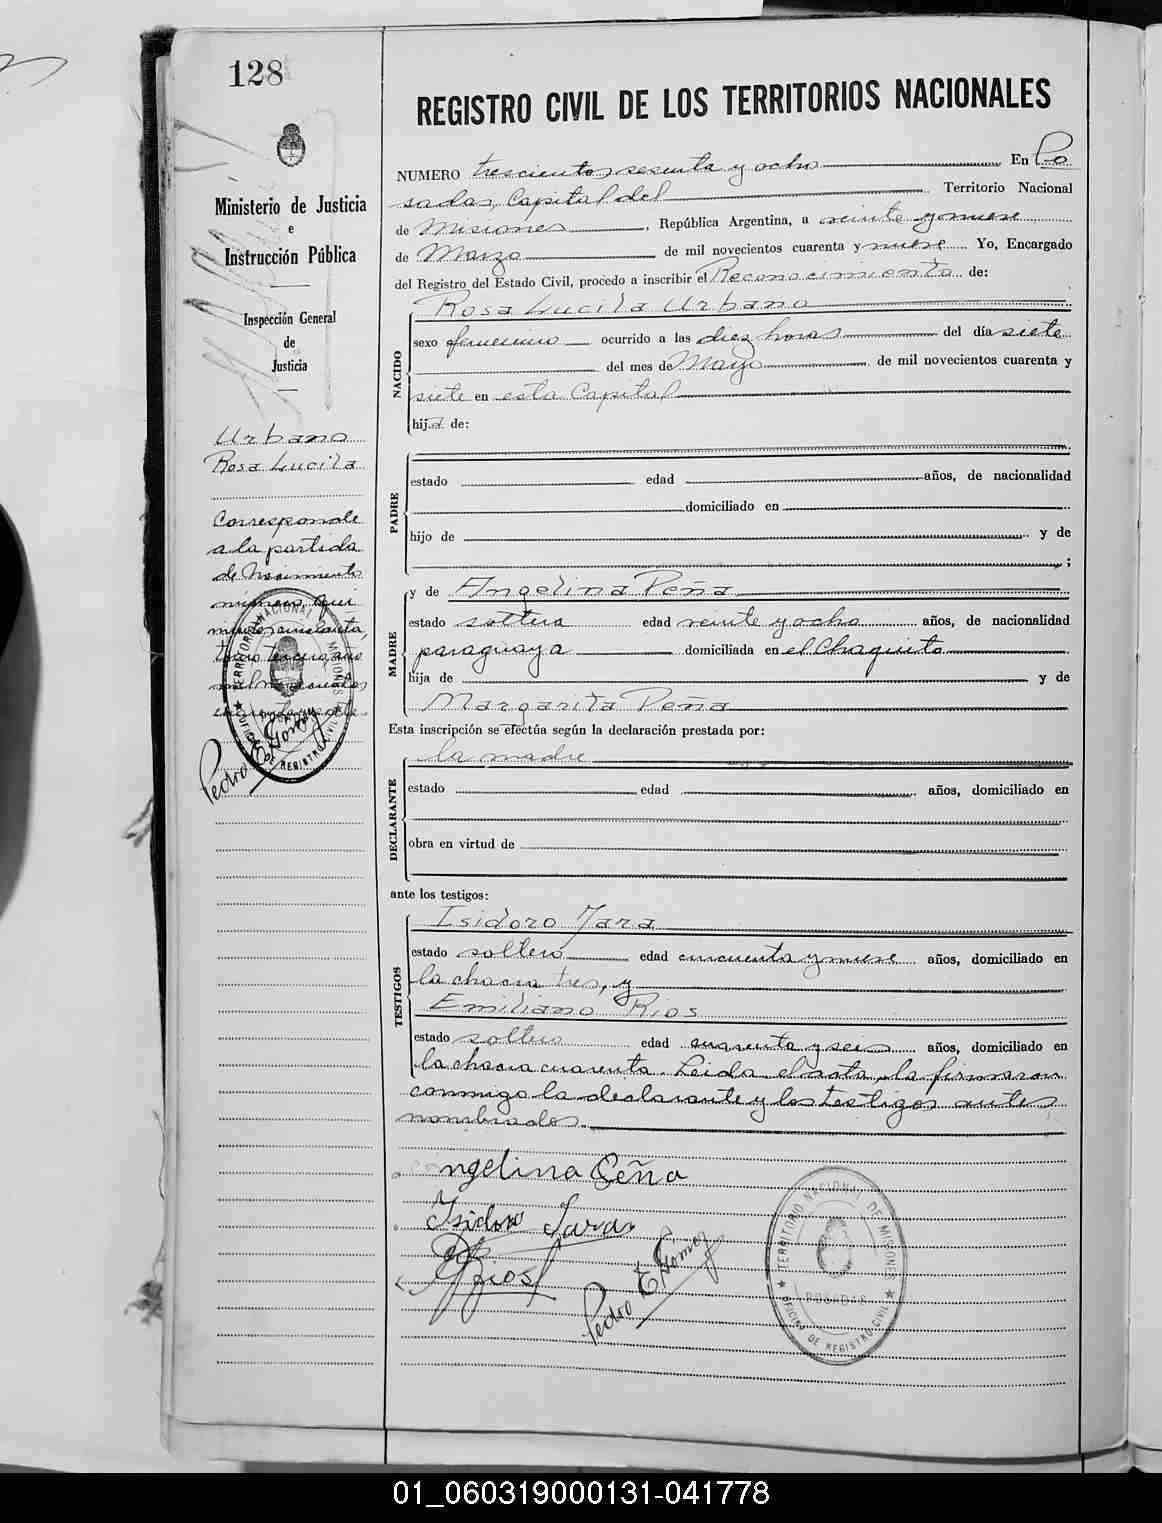 128
Ministerio de Justicia
e
Instrucción Pública
Inspección General
de
Justicia
Urbano
Rosa Lucila
Corresponde
a la partida
de Nacimiento
número qui
nientos cincuenta,
tomo tercero, año
mil novecientos
cuarenta y siete.
Pedro E Gomez
TERRITORIO NACIONAL DE MISIONES
OFICINA DE REGISTRO CIVIL
REGISTRO CIVIL DE LOS TERRITORIOS NACIONALES
NUMERO trescientos sesenta y ocho En Po
sadas, Capital del Territorio Nacional
de Misiones, República Argentina, a veinte y nueve
de Marzo de mil novecientos cuarenta y nueve Yo, Encargado
del Registro del Estado Civil, procedo a inscribir el Reconocimiento de:
Rosa Lucila Urbano
NACIDO
sexo femenino ocurrido a las diez horas del día siete
del mes de Mayo de mil novecientos cuarenta y
siete en esta Capital
hija de:
PADRE
estado edad años, de nacionalidad
domiciliado en
hijo de y de
;
MADRE
y de Angelina Peña
estado soltera edad veinte y ocho años, de nacionalidad
paraguaya domiciliada en el Chaquito
hija de y de
Margarita Peña
Esta inscripción se efectúa según la declaración prestada por:
DECLARANTE
la madre
estado edad años, domiciliado en
obra en virtud de
ante los testigos:
TESTIGOS
Isidoro Jara
estado soltero edad cincuenta y nueve años, domiciliado en
la chacra tres, y
Emiliano Rios
estado soltero edad cuarenta y seis años, domiciliado en
la chacra cuarenta. Leida el acta, la firmaron
conmigo la declarante y los testigos antes
nombrados.
Angelina Peña
Isidoro Jara
Rios
Pedro E Gomez
TERRITORIO NACIONAL DE MISIONES
POSADAS
OFICINA DE REGISTRO CIVIL
01_060319000131-041778